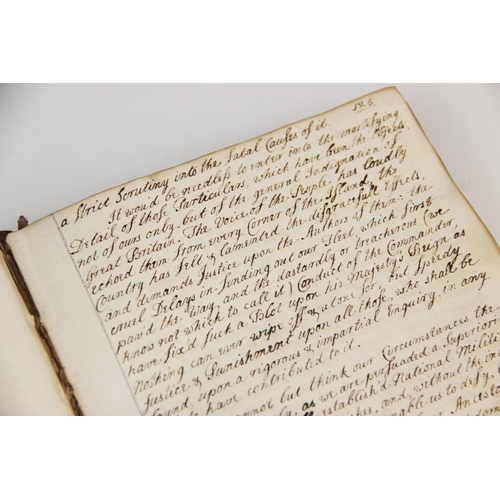 126.
a Strict Scrutiny into the Fatal Causes of it.
It wou'd be needless to enter into the mortifying
Detail of those Particulars, which have been the Objects,
not of ours only, but of the general Indignation of
Great Britain. The Voice of the People has loudly
echoed them from every Corner of the Island, the
Country has felt & lamented the disgracefull Effects,
and demands Justice upon the Authors of them: the
cruel Delays in sending out our Fleet, which first
pav'd the Way, and the dastardly or treacherous (we
know not which to call it) Conduct of the Commander,
have fix'd such a Blot upon his Majesty's Reign as
Nothing can ever wipe off & atone for, but speedy
Justice & Punishment upon all those, who shall be
found, upon a rigorous & impartial Enquiry, in any
to have contributed to it.
cannot but think our Circumstances the
as we are persuaded a Superior
establish'd National Militi
and without the in
enable us to defy,
our Ancesto